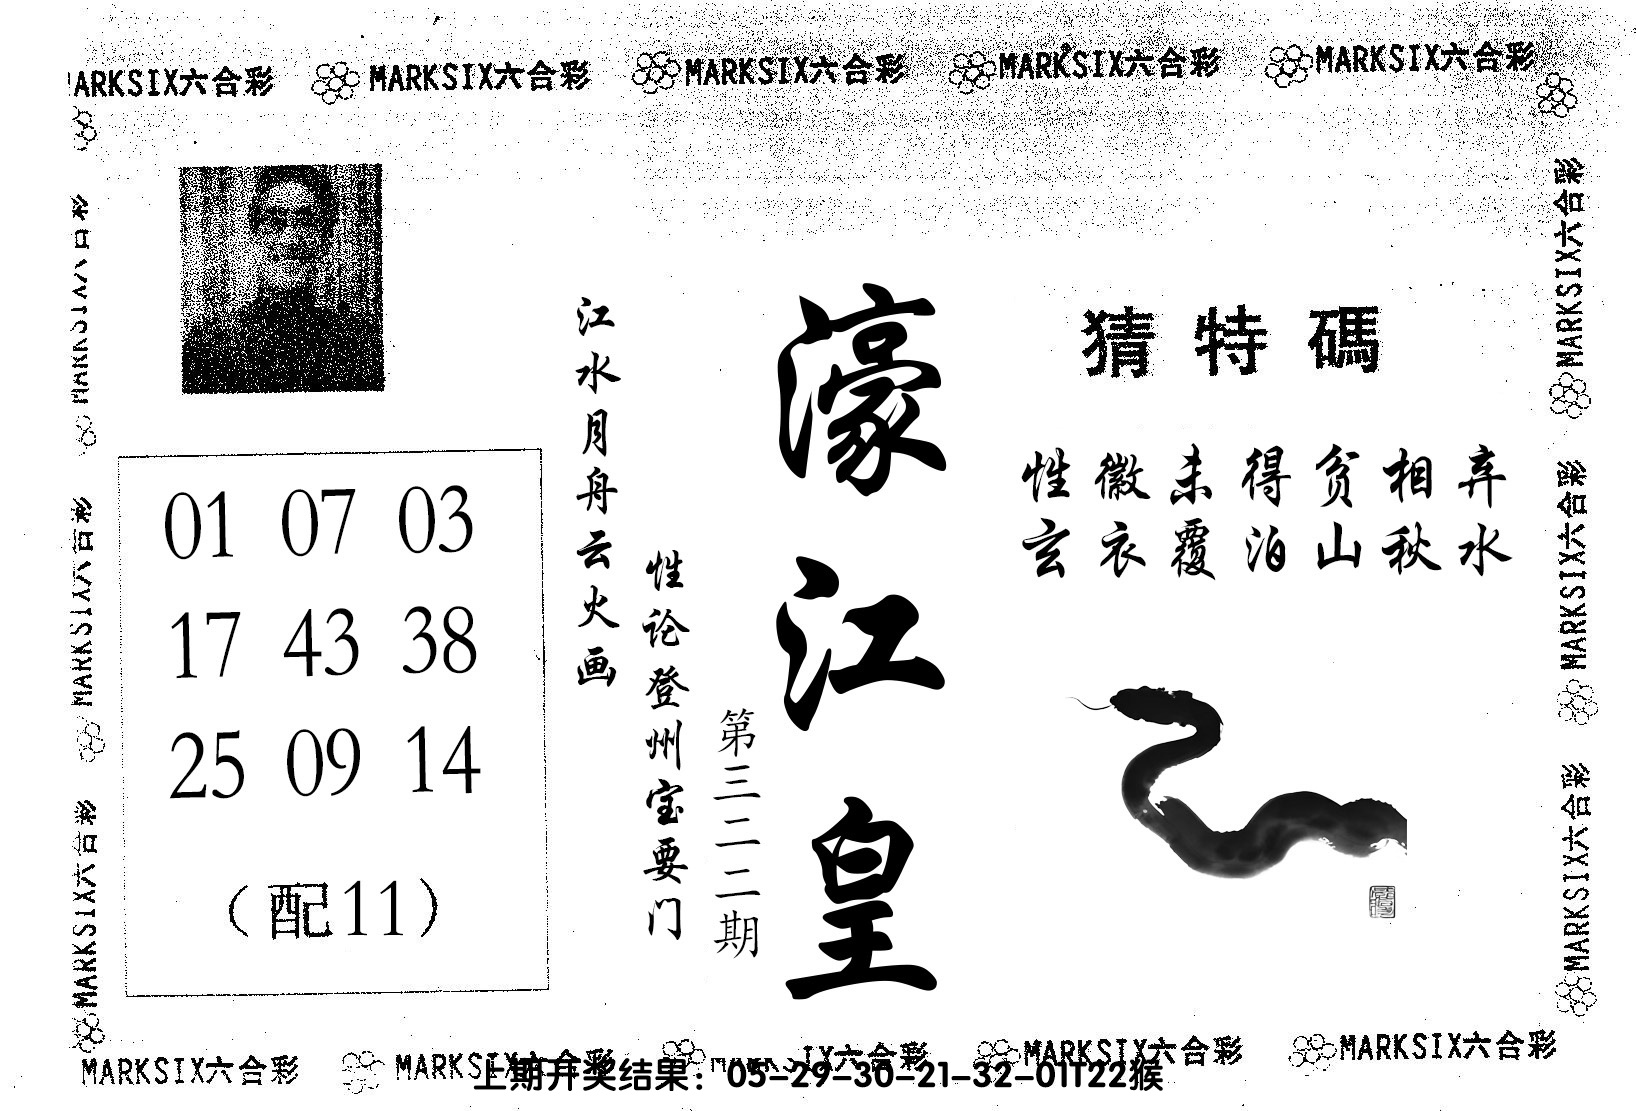 MARKSIX六合彩 MARKSIX六合彩 MARKSIX六合彩 MARKSIX六合彩 MARKSIX六合彩
濠江皇
猜特碼
性徽未得贫相弃
玄衣覆泊山秋水
江水月舟云火画
性论登州宝要门
第三二二期
01 07 03
17 43 38
25 09 14
（配11）
MARKSIX六合彩
MARKSIX六合彩
MARKSIX六合彩
MARKSIX六合彩
MARKSIX六合彩
MARKSIX六合彩
MARKSIX六合彩 MARKSIX六合彩 MARKSIX六合彩 MARKSIX六合彩 MARKSIX六合彩
上期开奖结果：05-29-30-21-32-01T22猴